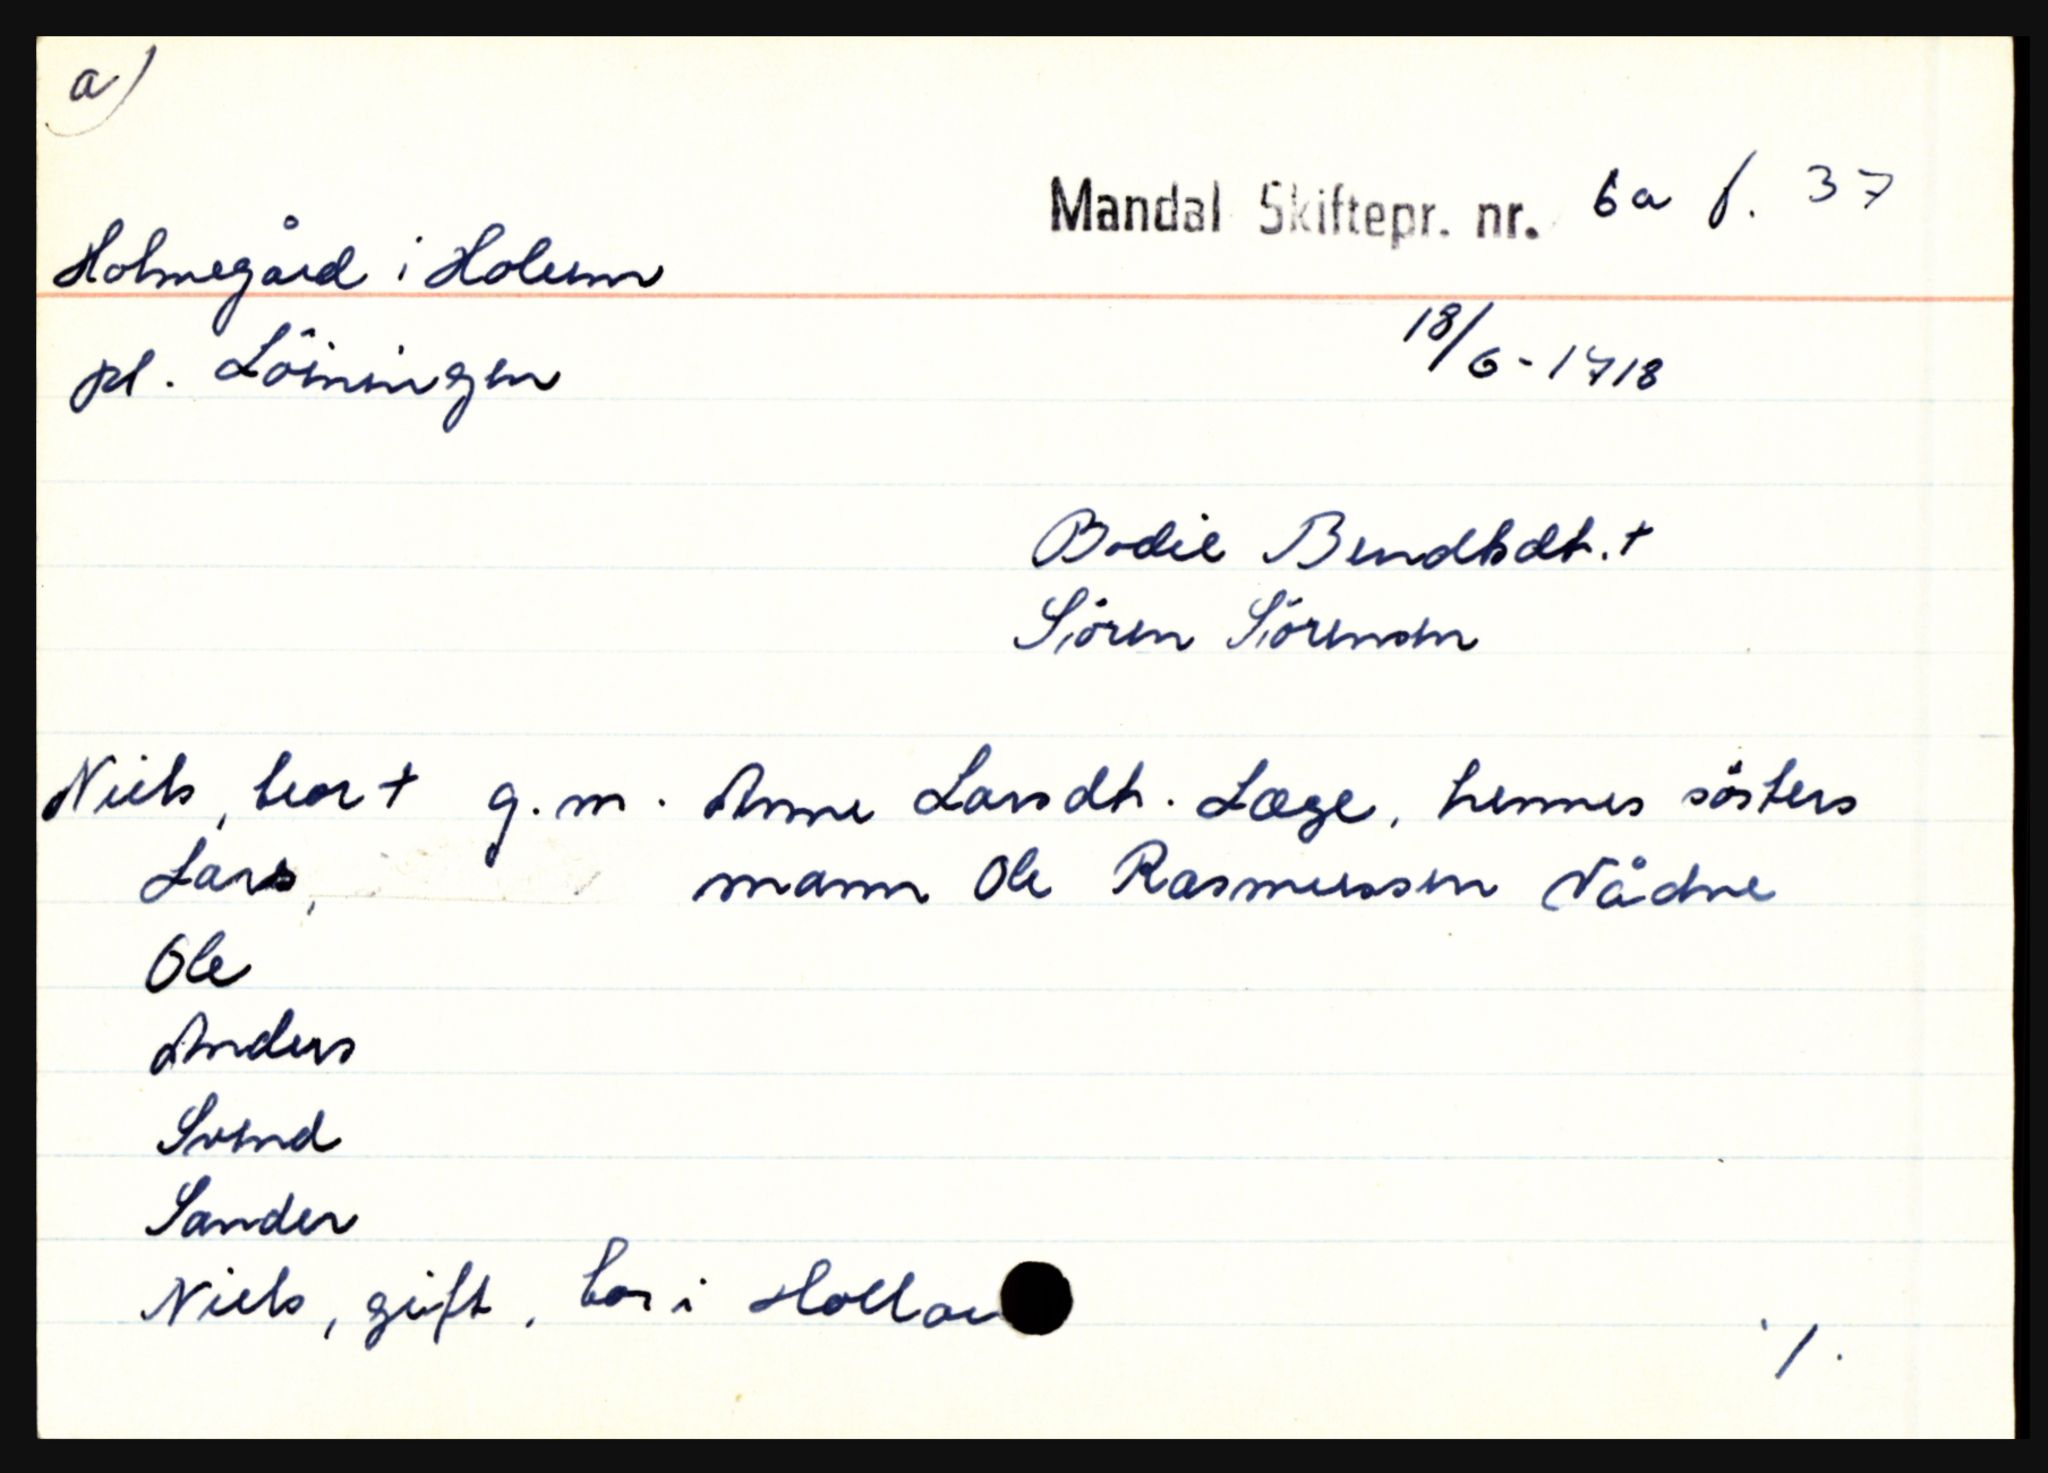 a)
Mandal Skiftepr. nr. 6a f. 37
Holmegård i Holum
pl. Löiningen
18/6-1718
Bodil Bendtsdt. +
Sören Sörensen
Niels, bror + g. m. Anne Larsdt. Læge, hennes sösters
Lars, mann Ole Rasmussen Vådne
Ole
Anders
Svend
Sander
Niels, gift, bor i
./.